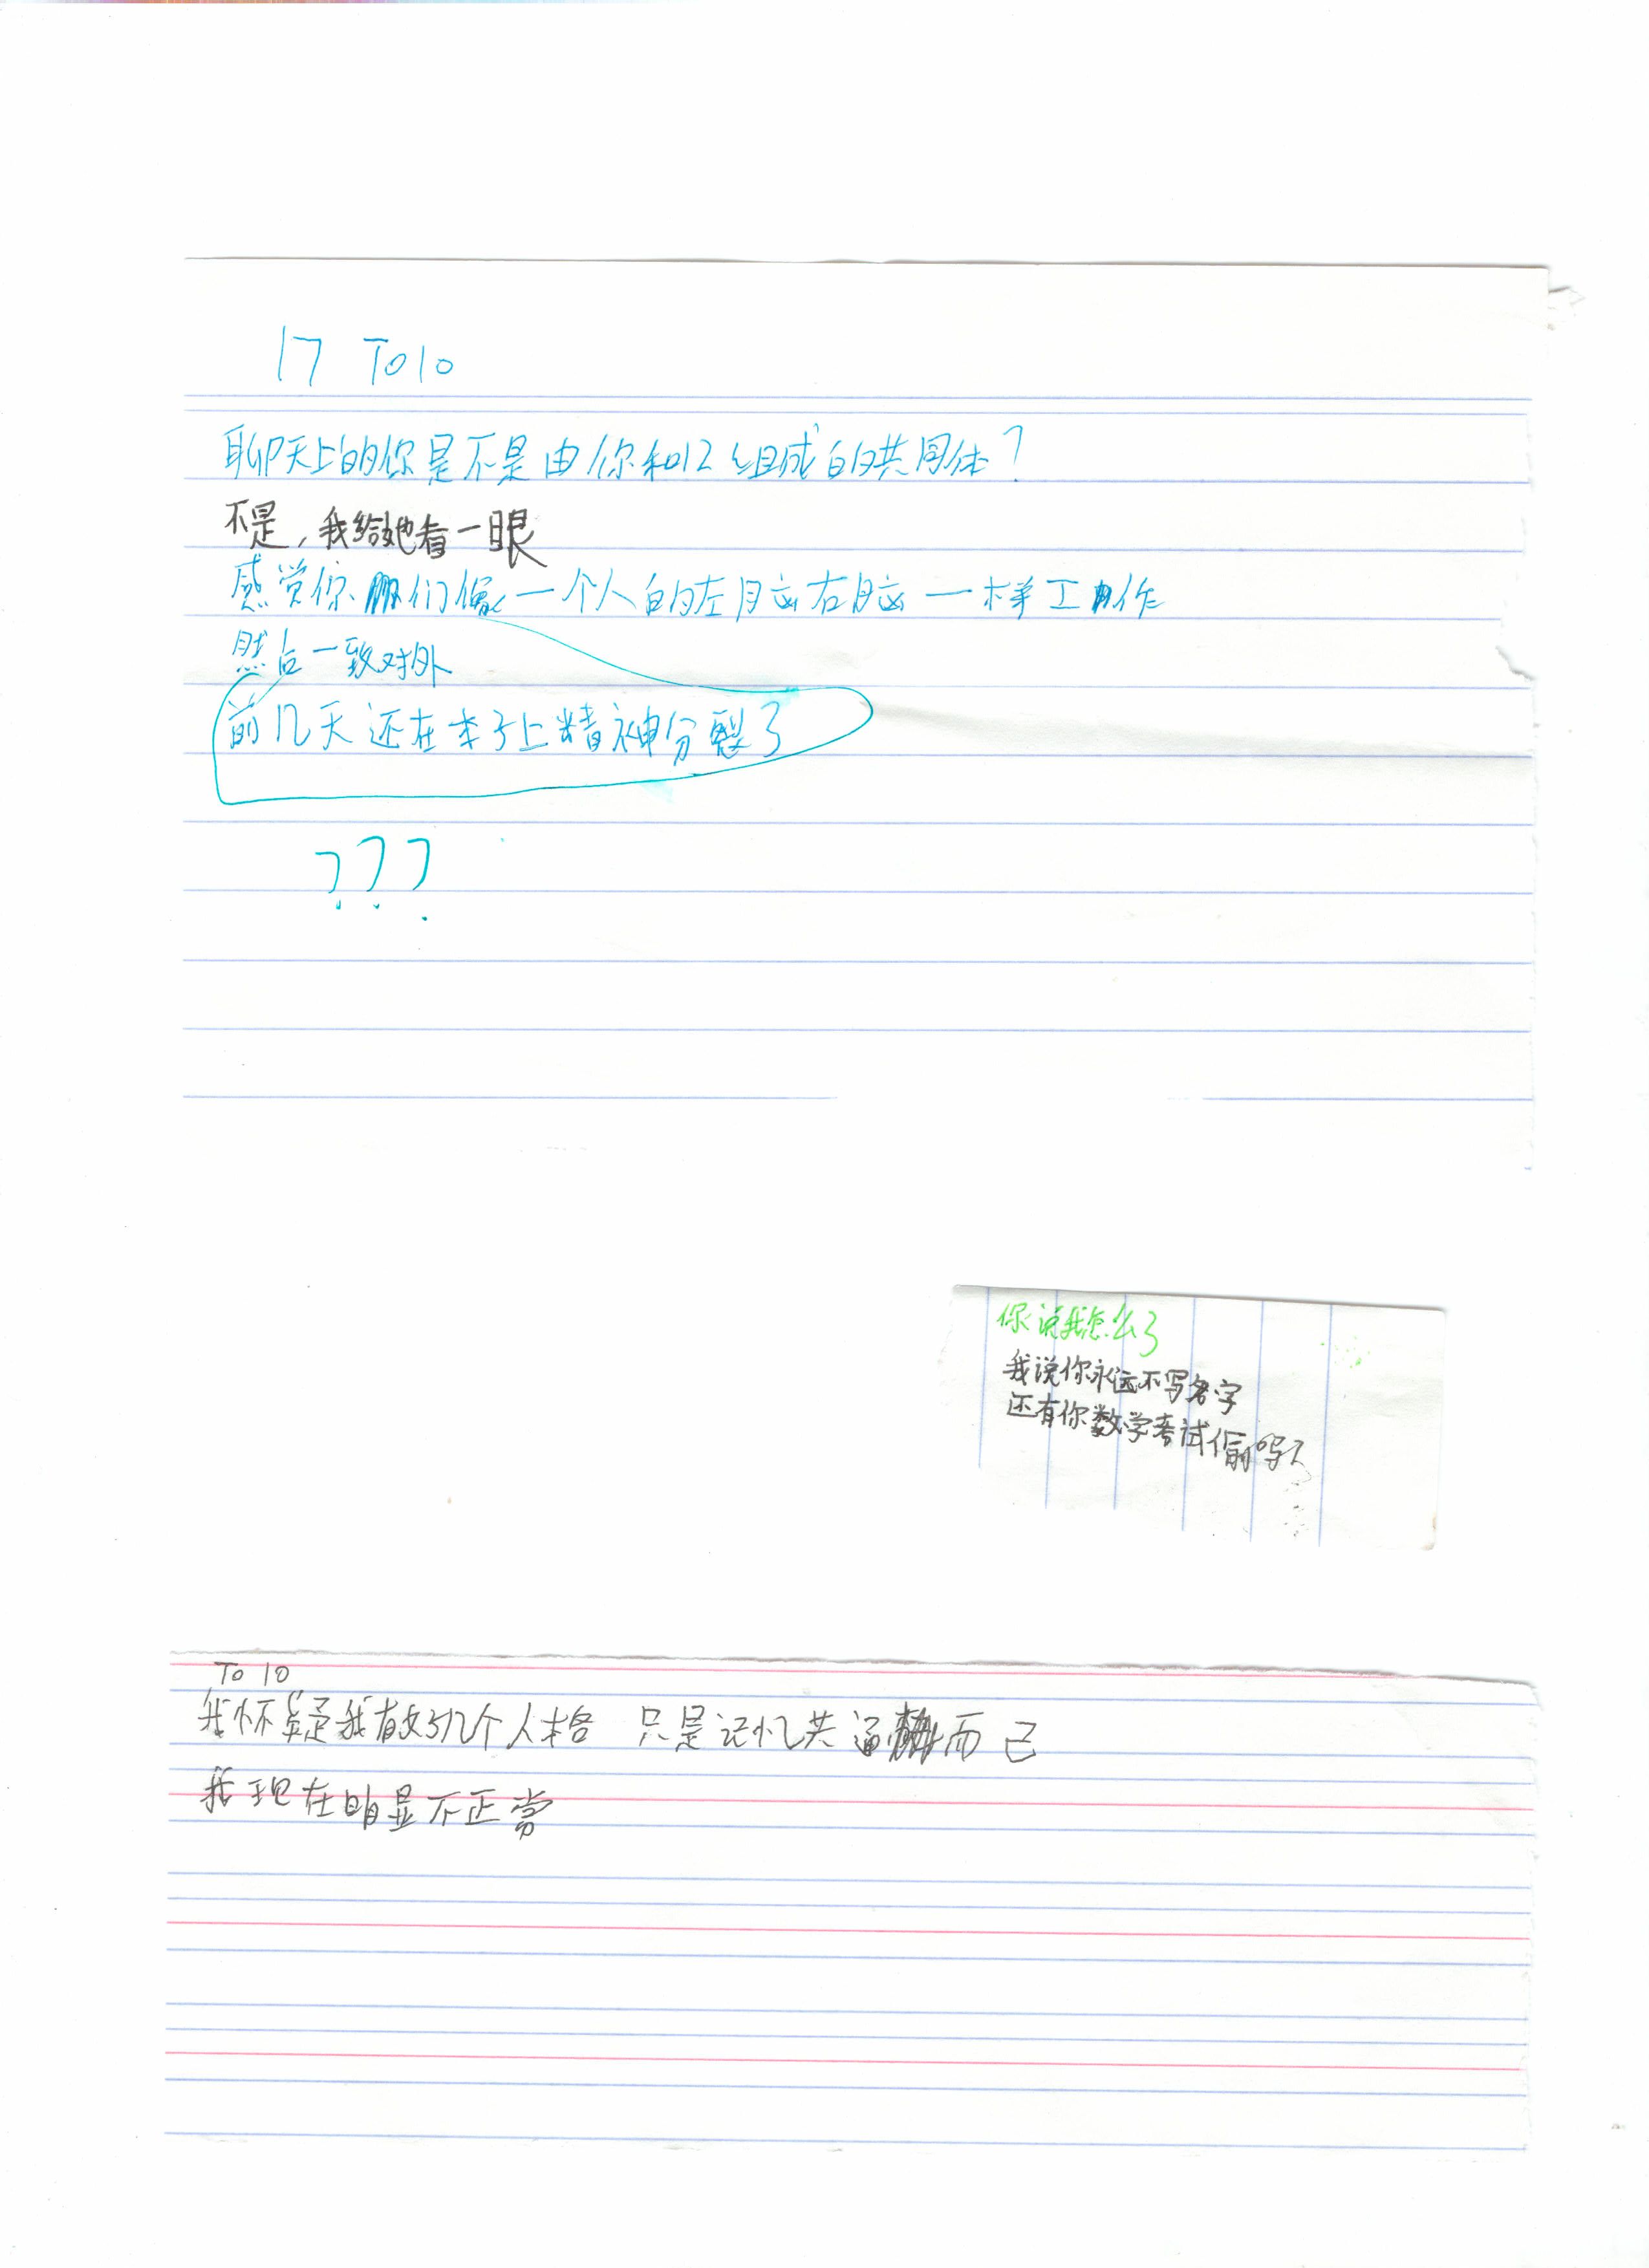 17 To 10
聊天上的你是不是由你和12组成的共同体?
不是,我给她看一眼
感觉你们像一个人的左脑右脑一样工作
然后一致对外
前几天还在本子上精神分裂了
???
你说我怎么了
我说你永远不写名字
还有你数学考试偷吗?
To 10
我怀疑我有好几个人格 只是记忆共通而已
我现在明显不正常